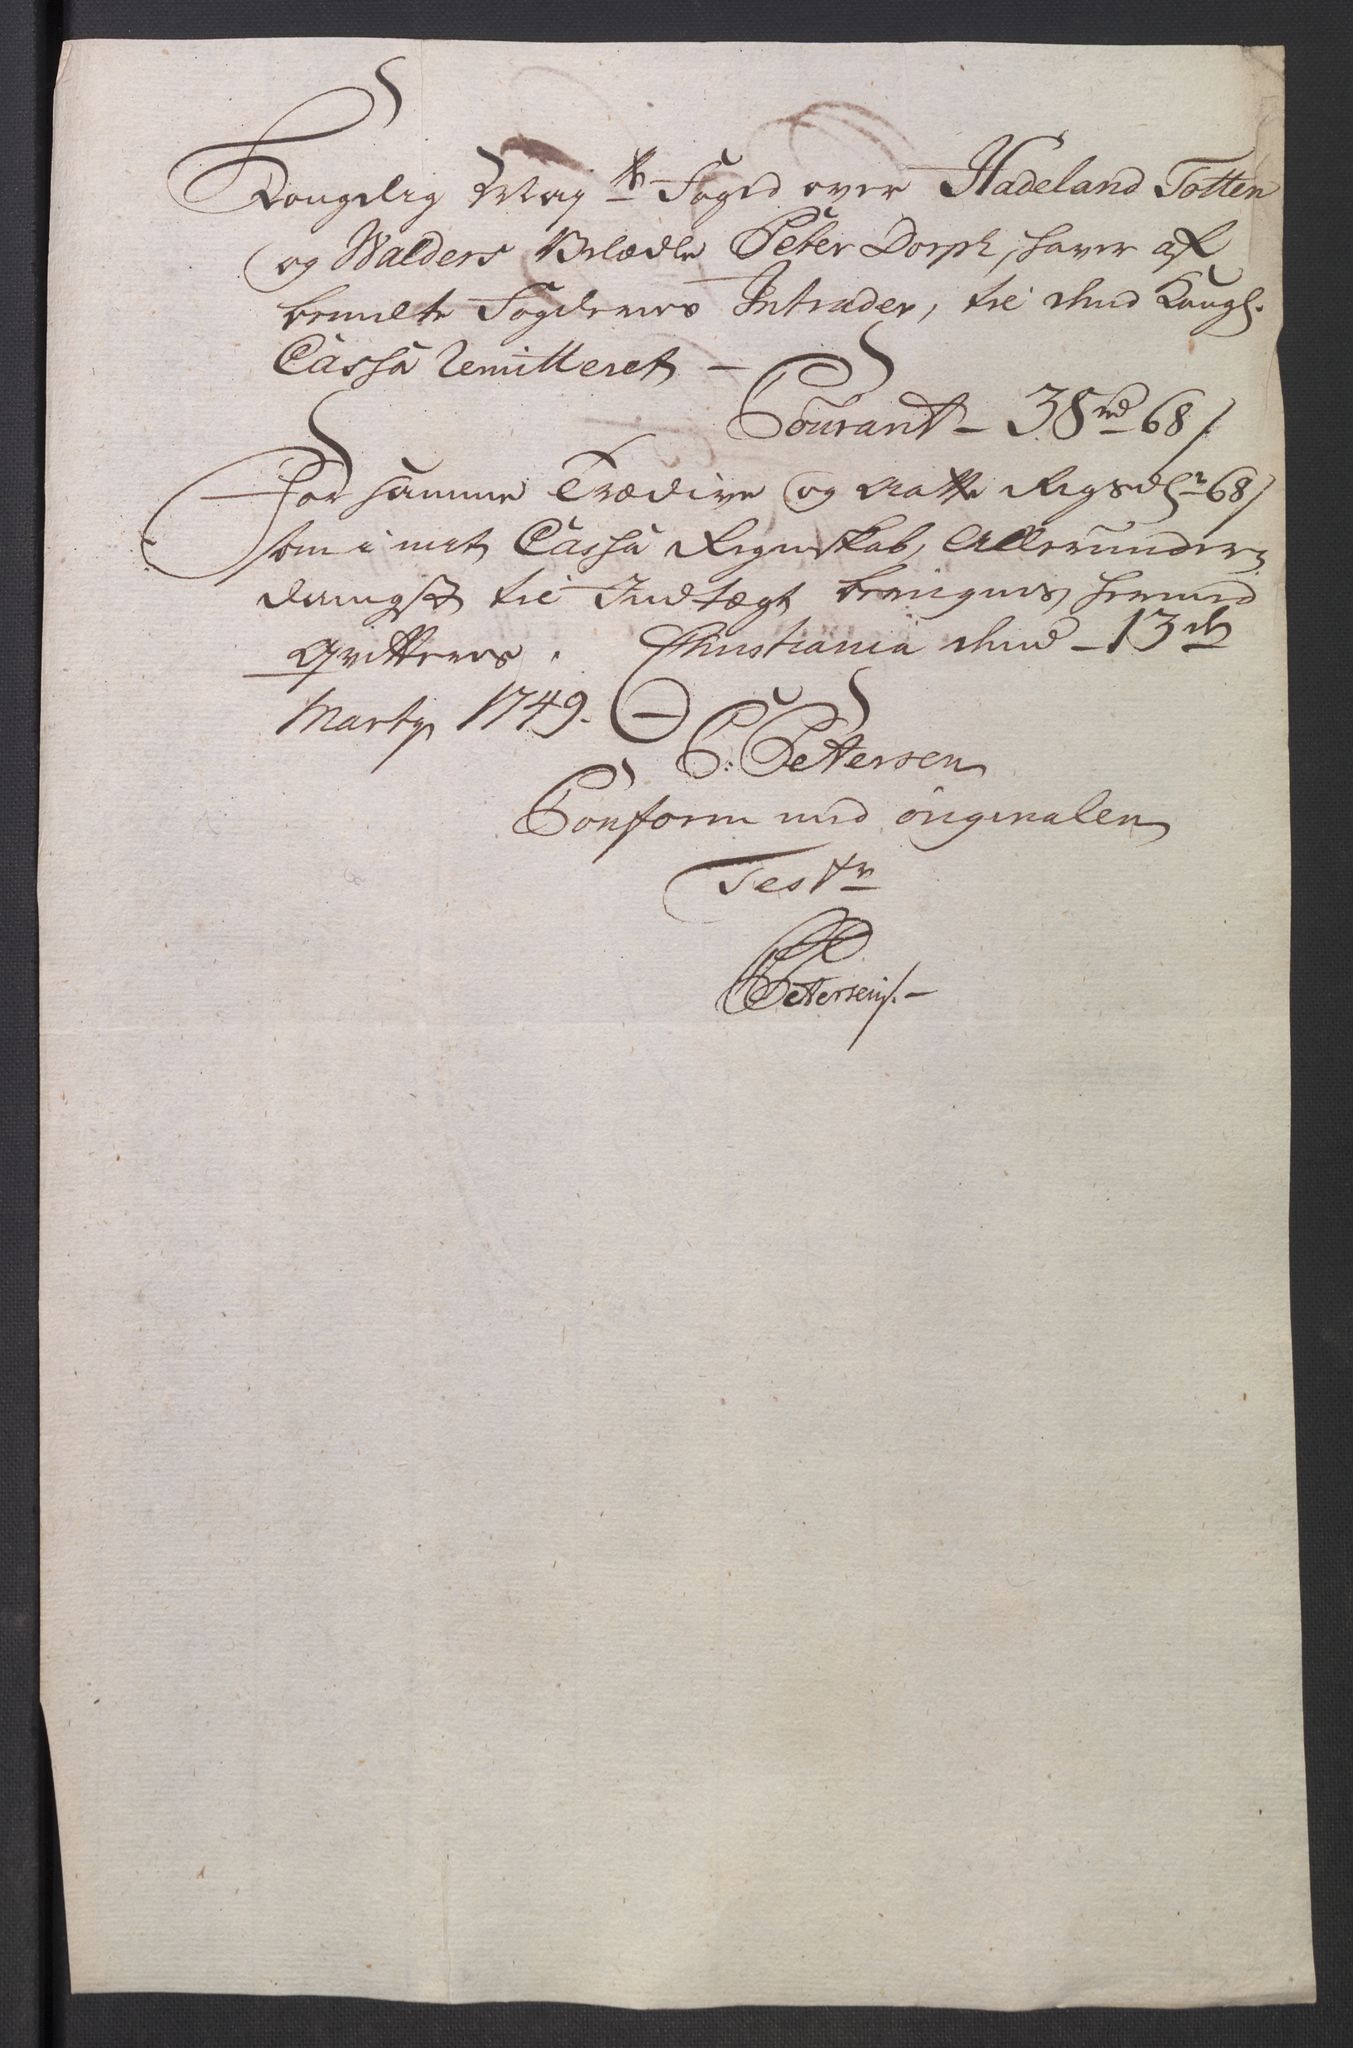 Kongelig May ts Foged over Hadeland Totten
og Walders Velædle Peter Dorph, haver af
bemelte Fogderies Intrader, til dend Kongl.
Cassa Remitteret —
Courant — 38 rd 68 s
For samme Tredive og Aatte Rigsdlr 68 s
som i mit Cassa Regnskab, Allerunder-
danigst til Indtægt bringes, hermed
qvitteres. Christiania dend 13 de
Marty 1749.
P: Pettersen
Conform med originalen
Test r
Pettersen /. —